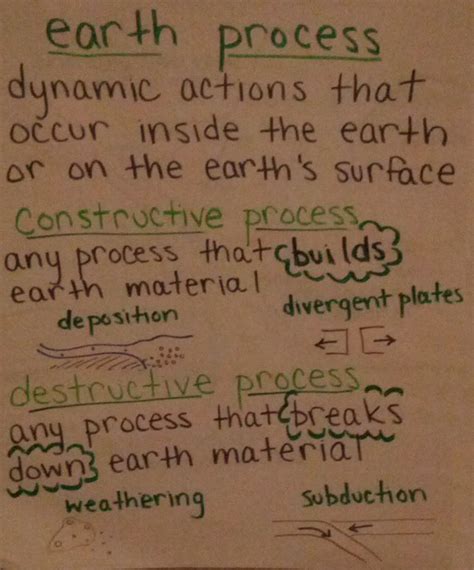 earth process
dynamic actions that
occur inside the earth
or on the earth's surface
constructive process
any process that builds
earth material
deposition divergent plates
destructive process
any process that breaks
down earth material
weathering subduction